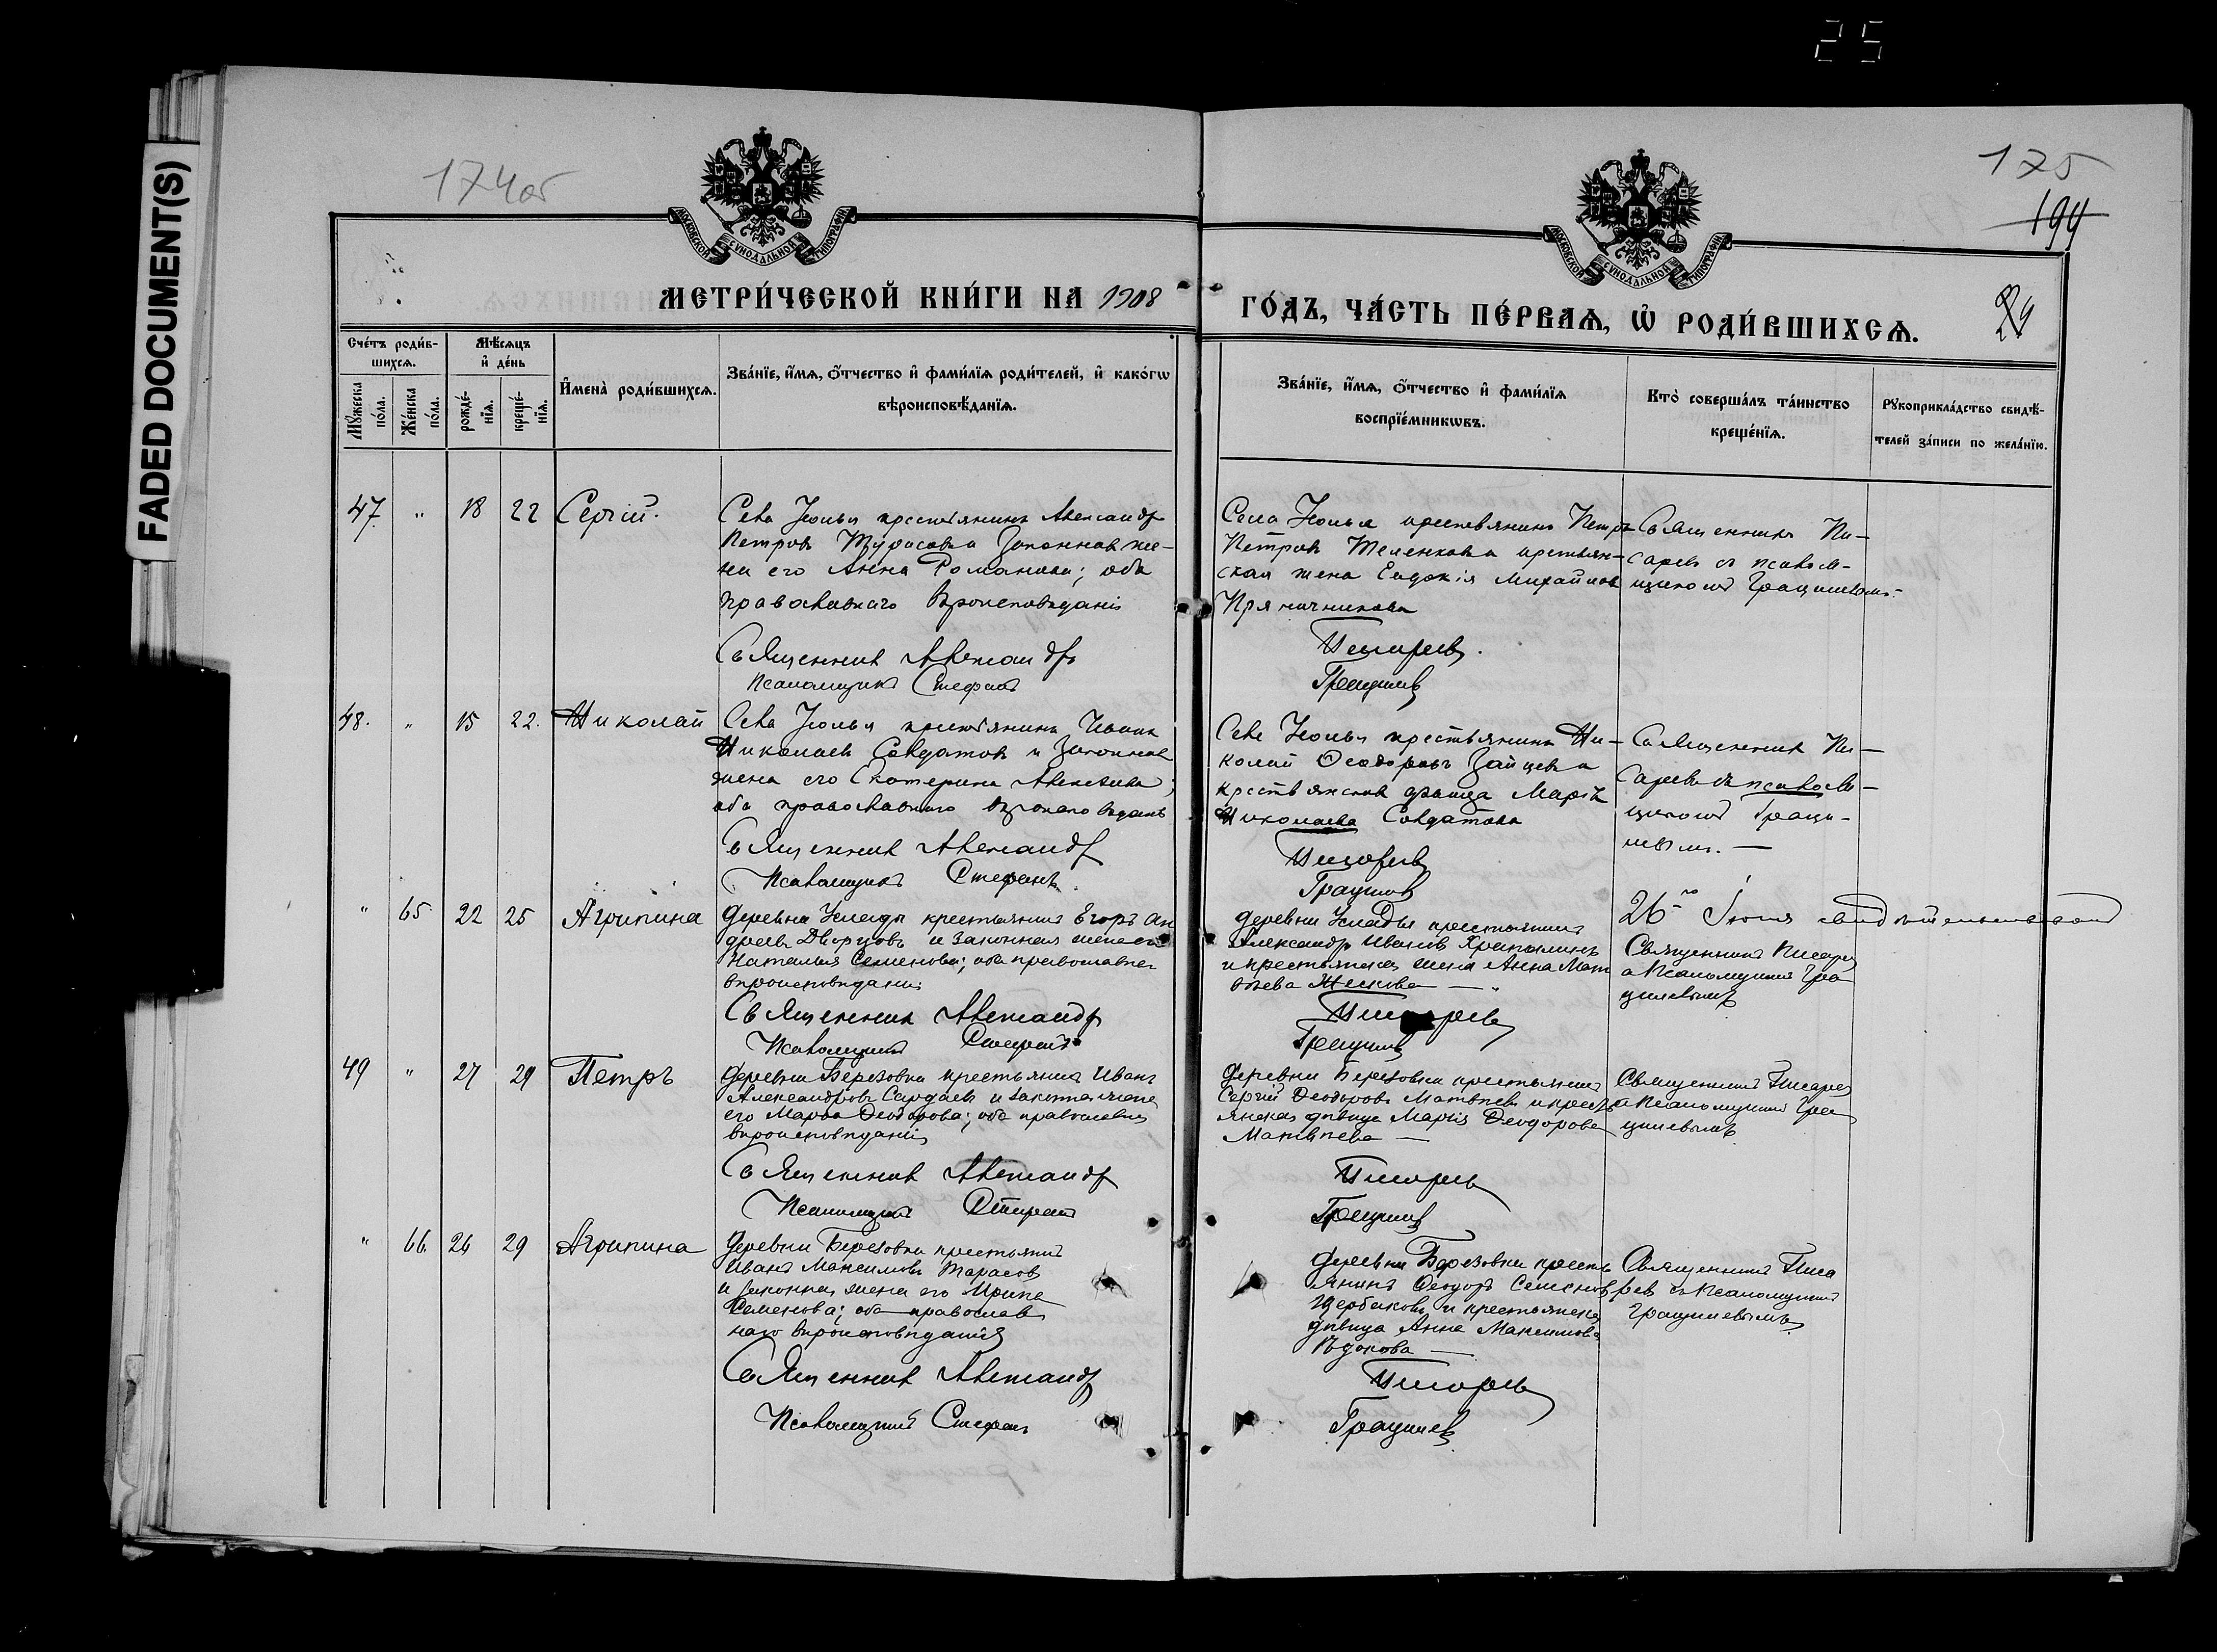 25
FADED DOCUMENT(S)
174об
175
194
24
МОСКОВСКОЙ СѴНОДАЛЬНОЙ ТИПОГРАФІИ
МОСКОВСКОЙ СѴНОДАЛЬНОЙ ТИПОГРАФІИ
МЕТРИ́ЧЕСКОЙ КНИ́ГИ НА 1908
ГО́ДЪ, ЧА́СТЬ ПЕ́РВАѦ, Ѡ҆ РОДИ́ВШИХСѦ.
Сче́тъ роди́в-
шихсѧ.
Мꙋ́жеска
по́ла.
Же́нска
по́ла.
Мѣ́сѧцъ
и҆ де́нь
рожде́-
нїѧ.
креще́-
нїѧ.
И҆мена̀ роди́вшихсѧ.
Зва́нїе, и҆́мѧ, ѻ҆́тчество и҆ фами́лїѧ роди́телей, и҆ како́гѡ
вѣроисповѣ́данїѧ.
Зва́нїе, и҆́мѧ, ѻ҆́тчество и҆ фами́лїѧ
воспрїе́мникѡвъ.
Кто̀ соверша́лъ та́инство
креще́нїѧ.
Рꙋкоприкла́дство свидѣ́-
телей за́писи по жела́нїю.
47. " 18 22 Сергій.
Села крестьянинъ Александръ
Петровъ и законная же-
на его Анна Романова; оба
православнаго вѣроисповѣданія
Священникъ Александръ
Псаломщикъ Стефанъ
Села крестьянинъ Петръ
Петровъ и крестьян-
ская жена Евдокія Михайлова
Пряничникова
Писаревъ.
Грацилевъ
Священникъ Пи-
саревъ съ псалом-
щикомъ Грацилевымъ.
48. " 15 22. Николай
Села крестьянинъ Иванъ
Николаевъ Солдатовъ и законная
жена его Екатерина Алексѣева;
оба православнаго вѣроисповѣданія
Священникъ Александръ
Псаломщикъ Стефанъ
Села крестьянинъ Ни-
колай Ѳеодоровъ Зайцевъ и
крестьянская дѣвица Марія
Николаева Солдатова
Писаревъ
Грацилевъ
Священникъ Пи-
саревъ съ псалом-
щикомъ Граци-
левымъ. —
" 65. 22 25 Агрипина
Деревни крестьянинъ Егоръ Ан
дреевъ Дворцовъ и законная жена его
Наталья Семенова; оба православнаго
вѣроисповѣданія
Священникъ Александръ
Псаломщикъ Стефанъ
Деревни крестьянинъ
Александръ Ивановъ
и крестьянская жена Анна Мат
вѣева
Писаревъ
Грацилевъ
26-го Іюня
Священникъ Писаревъ
съ Псаломщикомъ Гра
цилевымъ
49 " 27 29 Петръ
Деревни Березовки крестьянинъ Иванъ
Александровъ Сардаевъ и законная жена
его Марѳа Ѳеодорова; оба православнаго
вѣроисповѣданія
Священникъ Александръ
Псаломщикъ Стефанъ
Деревни Березовки крестьянинъ
Сергій Ѳеодоровъ Матвѣевъ и кресть
янская дѣвица Марія Ѳеодорова
Матвѣева —
Писаревъ
Грацилевъ
Священникъ Писаревъ
съ Псаломщикомъ Гра
цилевымъ
" 66. 26 29 Агрипина
Деревни Березовки крестьянинъ
Иванъ Максимовъ Тарасовъ
и законная жена его Ирина
Семенова; оба православ
наго вѣроисповѣданія
Священникъ Александръ
Псаломщикъ Стефанъ
Деревни Березовки кресть
янинъ Ѳеодоръ Семеновъ
Щербаковъ и крестьянская
дѣвица Анна Максимова
Писаревъ
Грацилевъ
Священникъ Писа
ревъ съ Псаломщикомъ
Грацилевымъ